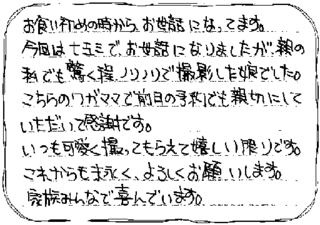 お食い初めの時から、お世話になってます。
今回は七五三で、お世話になりましたが、親の
私でも驚く程、ノリノリで撮影した娘でした。
こちらのワガママで前日の予約でも親切にして
いただいて感謝です。
いつも可愛く撮ってもらえて嬉しい限りです。
これからも末永く、よろしくお願いします。
家族みんなで喜んでいます。